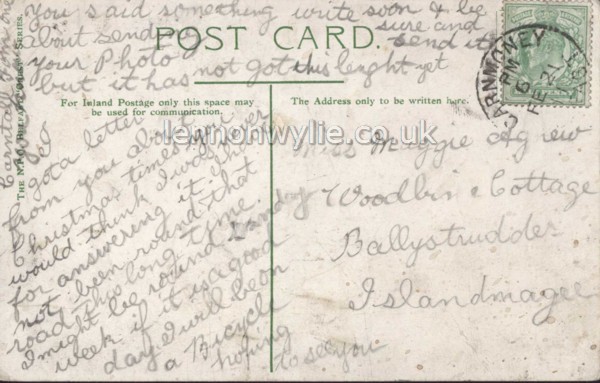 you said something write soon & be
about sending sure and
your Photo send it
but it has not got this lenght yet
POST CARD.
For Inland Postage only this space may
be used for communication.
The Address only to be written here.
THE N.P.O. BELFAST SERIES.
CARNMONEY
PM
FE 21
lennonwylie.co.uk
I got a letter
from you about
Christmas times
would think I might
for answering it I
not been round that
road this long time.
I might be round
week if it is a good
day I will be on
a Bicycle
hoping to see you
Miss Maggie Agnew
Woodbine Cottage
Ballystrudder
Islandmagee